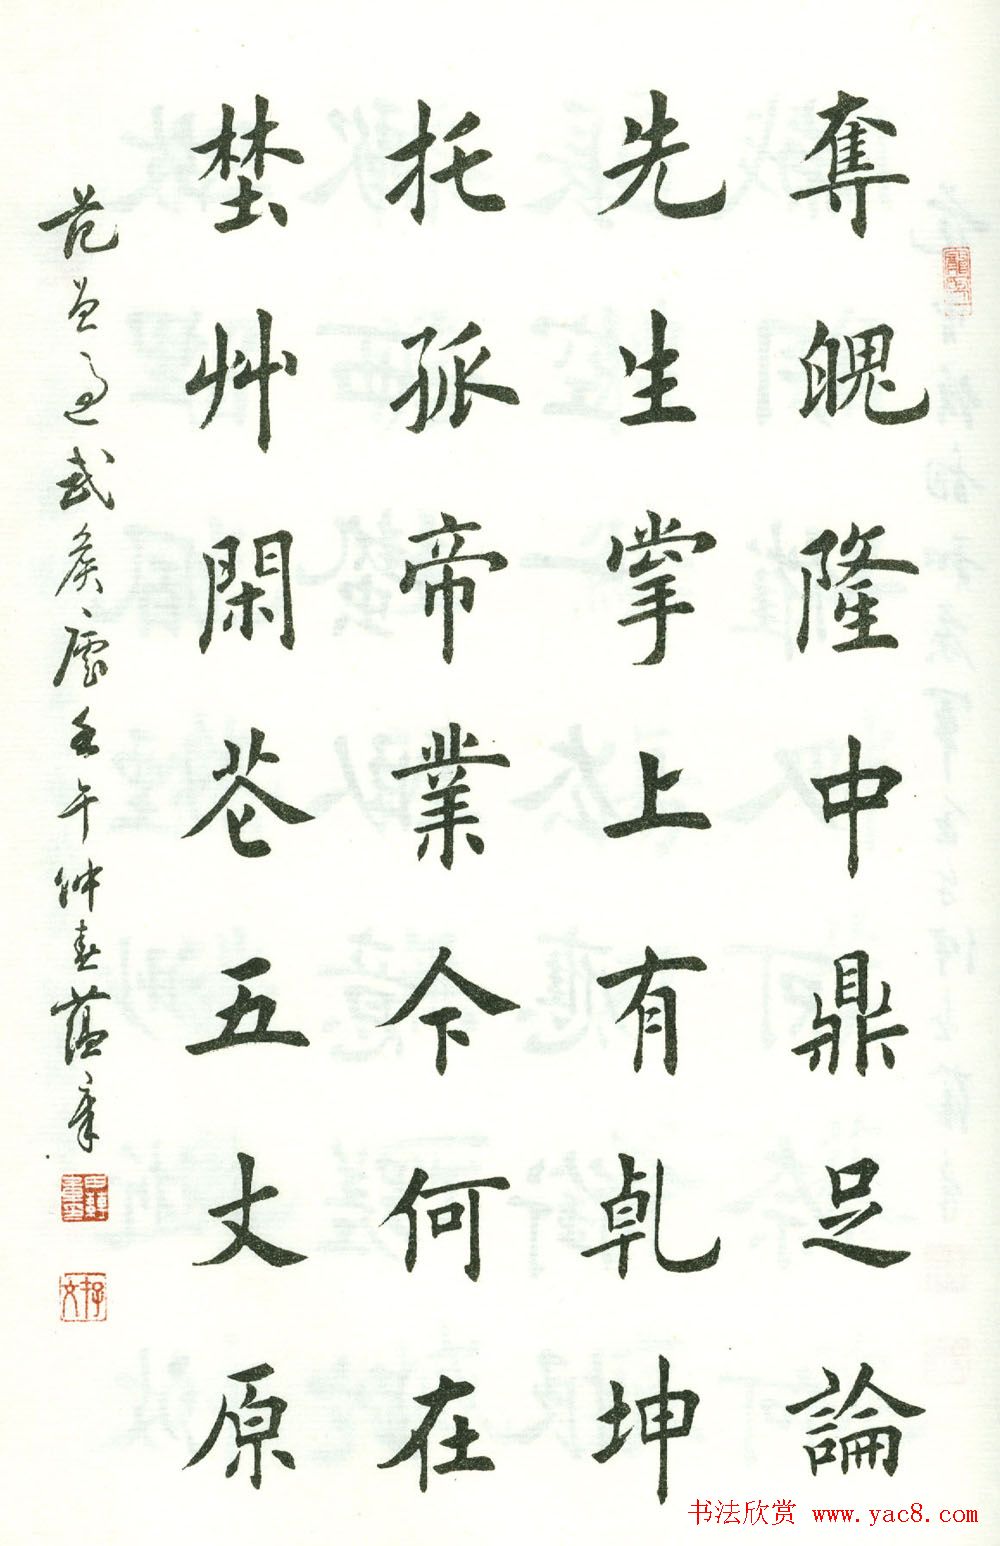 奪魄隆中鼎足論
先生掌上有乾坤
托孤帝業今何在
埜艸閑花五丈原
范曾過武矦廬壬午仲春蘊章
书法欣赏 www.yac8.com